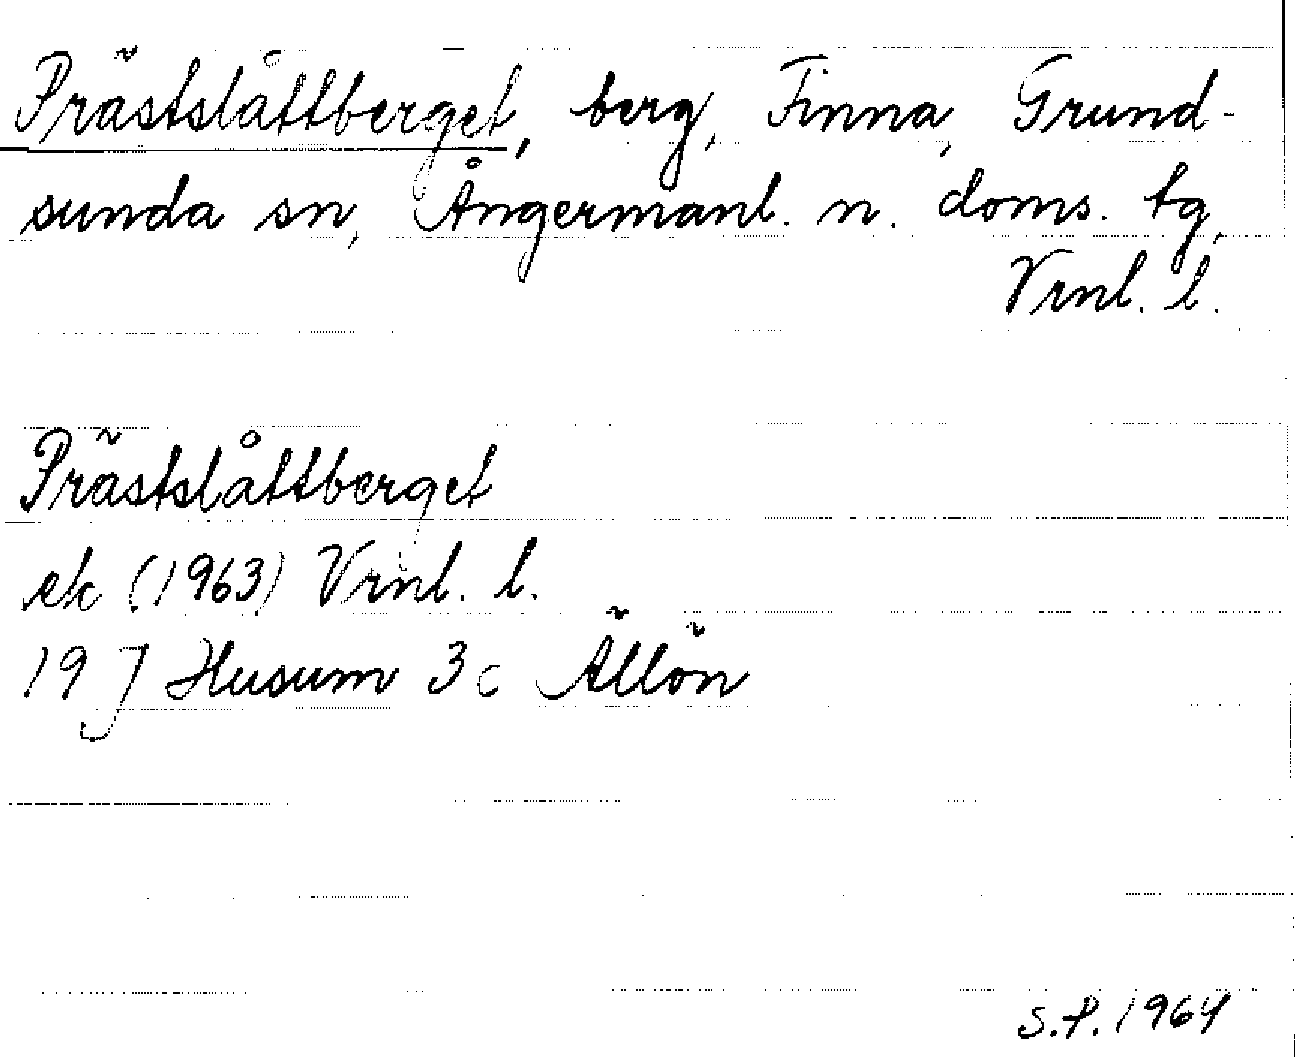 Prästslåttberget, berg, Finna, Grund-
sunda sn, Ångermanl. n. doms. tg,
Vrnl. l.
Prästslåttberget
ek (1963) Vrnl. l.
19 J Husum 3c Ällön
S.P. 1964